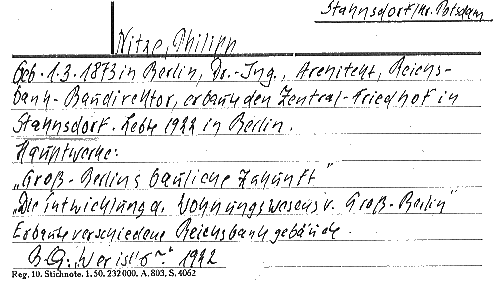 Stahnsdorf/Kr. Potsdam
Nitze, Philipp
Geb. 1.3.1873 in Berlin, Dr.-Ing., Architekt, Reichs-
bank-Baudirektor, erbaute den Zentral-Friedhof in
Stahnsdorf. Lebte 1922 in Berlin.
Hauptwerke:
„Groß-Berlins bauliche Zukunft"
„Die Entwicklung d. Wohnungswesens v. Groß-Berlin"
Erbaute verschiedene Reichsbankgebäude.
B.G.: Wer ist's 1922
Reg. 10. Stichnote. 1. 50. 232000. A. 803, S. 4062